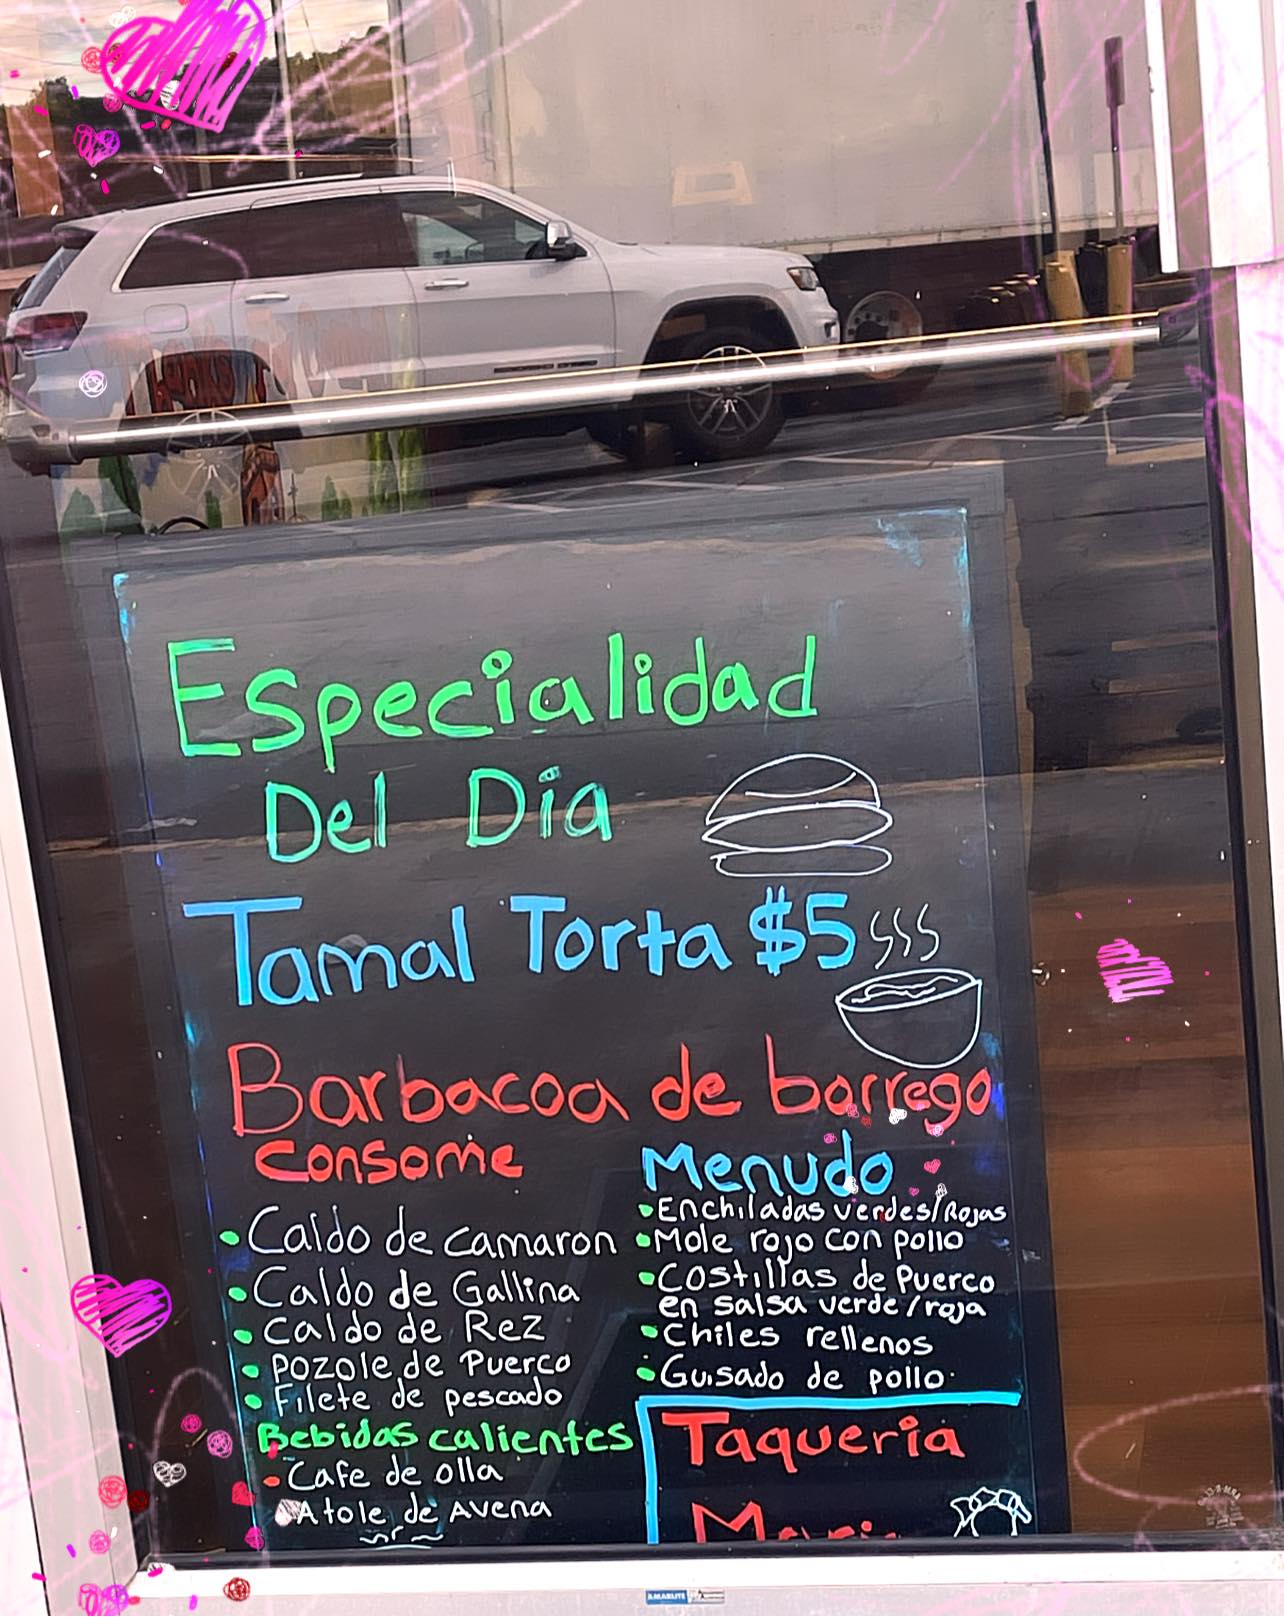 Especialidad
Del Día
Tamal Torta $5
Barbacoa de borrego
Consome
Menudo
• Caldo de camaron
• Caldo de Gallina
• Caldo de Rez
• Pozole de Puerco
• Filete de pescado
Bebidas calientes
• Cafe de olla
• Atole de Avena
• Enchiladas verdes/Rojas
• Mole rojo con pollo
• Costillas de Puerco
en salsa verde/roja
• Chiles rellenos
• Guisado de pollo
Taqueria
AMARLITE